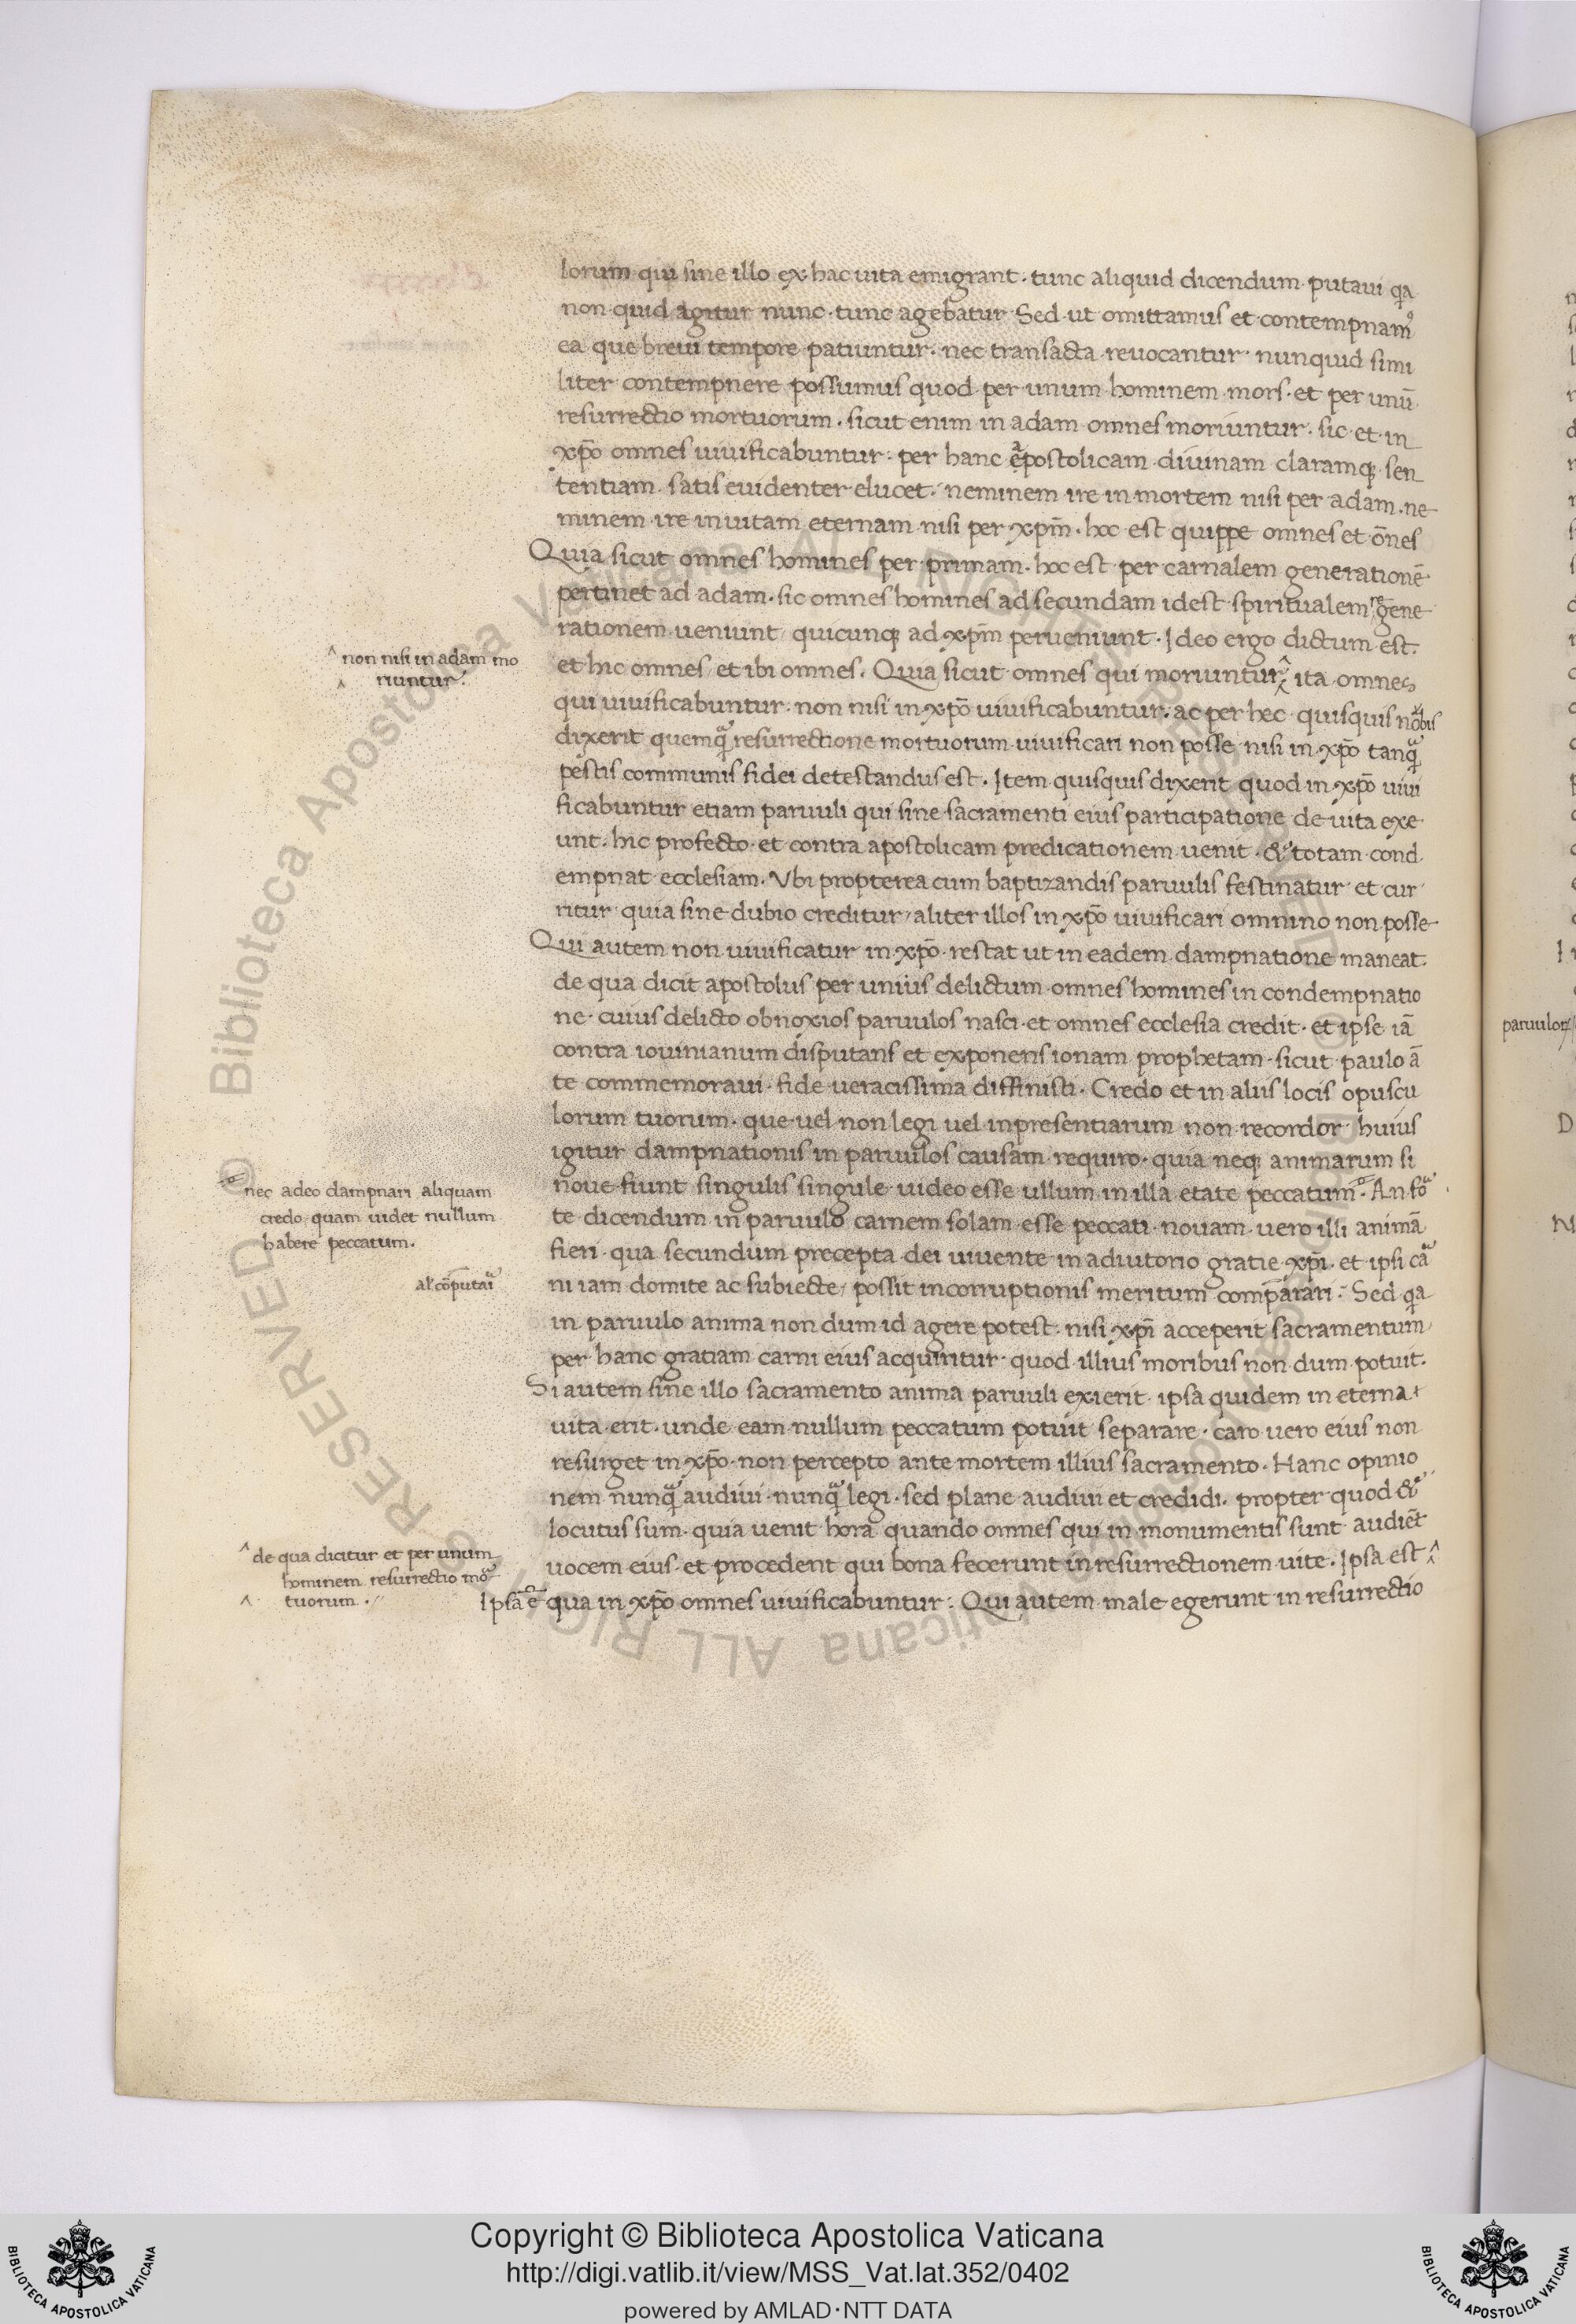 lorum qui sine illo ex hac uita emigrant · tunc aliquid dicendum putaui q̄a
non quid agitur nunc · tunc agebatur Sed ut omittamus et contempnam᷒
ea que breui tempore patiuntur · nec transacta reuocantur · nunquid simi
liter contempnere possumus quod per unum hominem mors · et per unū
resurrectio mortuorum · sicut enim in adam omnes moriuntur · sic et in
xp̄o omnes uiuificabuntur · per hanc apostolicam diuinam claramq; sen
tentiam satis euidenter elucet · neminem ire in mortem nisi per adam · ne
minem ire in uitam eternam nisi per xp̄m · hoc est quippe omnes et om̄es
Quia sicut omnes homines per primam · hoc est per carnalem generationē
pertinet ad adam · sic omnes homines ad secundam idest spiritualem regene
rationem ueniunt / quicunq; ad xp̄m perueniunt · Ideo ergo dictum est ·
^ non nisi in adam mo
^ riuntur ·
et hic omnes / et ibi omnes · Quia sicut omnes qui moriuntur ^ ita omnes
qui uiuificabuntur · non nisi in xp̄o uiuificabuntur · ac per hec quisquis nobis
dixerit quemq̄ resurrectione mortuorum uiuificari non posse nisi in xp̄o tanq̄
pestis communis fidei detestandus est · Item quisquis dixerit quod in xp̄o uiui
ficabuntur etiam paruuli qui sine sacramenti eius participatione de uita exe
unt · hic profecto et contra apostolicam predicationem uenit · & totam cond
empnat ecclesiam · Vbi propterea cum baptizandis paruulis festinatur et cur
ritur quia sine dubio creditur / aliter illos in xp̄o uiuificari omnino non posse
Qui autem non uiuificatur in xp̄o · restat ut in eadem dampnatione maneat ·
de qua dicit apostolus per unius delictum omnes homines in condempnatio
ne · cuius delicto obnoxios paruulos nasci · et omnes ecclesia credit · et ipse iā
contra iouinianum disputans et exponens ionam prophetam · sicut paulo ā
te commemoraui · fide ueracissima diffinisti · Credo et in aliis locis opuscu
lorum tuorum · que uel non legi uel inpresentiarum non recordor huius
igitur dampnationis in paruulos causam requiro · quia neq; animarum si
noue fiunt singulis singule uideo esse ullum in illa etate peccatum · An fo
nec adeo dampnari aliquam
credo · quam uidet nullum
habere peccatum ·
te dicendum in paruulo carnem solam esse peccati · nouam uero illi animā
fieri · qua secundum precepta dei uiuente in adiutorio gratie xp̄i · et ipsi ca
al' cōputari
ni iam domite ac subiecte / possit incorruptionis meritum comparari · Sed q̄a
in paruulo anima non dum id agere potest · nisi xp̄i acceperit sacramentum
per hanc gratiam carni eius acquiritur · quod illius moribus non dum potuit ·
Si autem sine illo sacramento anima paruuli exierit · ipsa quidem in eterna
uita erit · unde eam nullum peccatum potuit separare · caro uero eius non
resurget in xp̄o · non percepto ante mortem illius sacramento · Hanc opinio
nem nunq̄ audiui · nunq̄ legi · sed plane audiui et credidi · propter quod &
locutus sum · quia uenit hora quando omnes qui in monumentis sunt audiēt
uocem eius · et procedent qui bona fecerunt in resurrectionem uite · Ipsa est ^
^ de qua dicitur et per unum
hominem resurrectio mor
^ tuorum ·
Ipsa ē qua in xp̄o omnes uiuificabuntur · Qui autem male egerunt in resurrectio
paruulor
Copyright © Biblioteca Apostolica Vaticana
http://digi.vatlib.it/view/MSS_Vat.lat.352/0402
powered by AMLAD·NTT DATA
BIBLIOTECA APOSTOLICA VATICANA
BIBLIOTECA APOSTOLICA VATICANA
© Biblioteca Apostolica Vaticana ALL RIGHTS RESERVED © Biblioteca Apostolica Vaticana ALL RIGHTS RESERVED